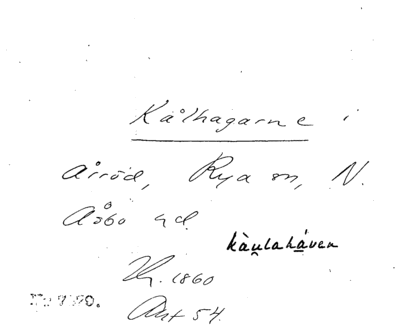 Kålhagarne i
Årröd, Rya sn, N.
Åsbo hd.
kàu̯laháven
1860
Ant 54.